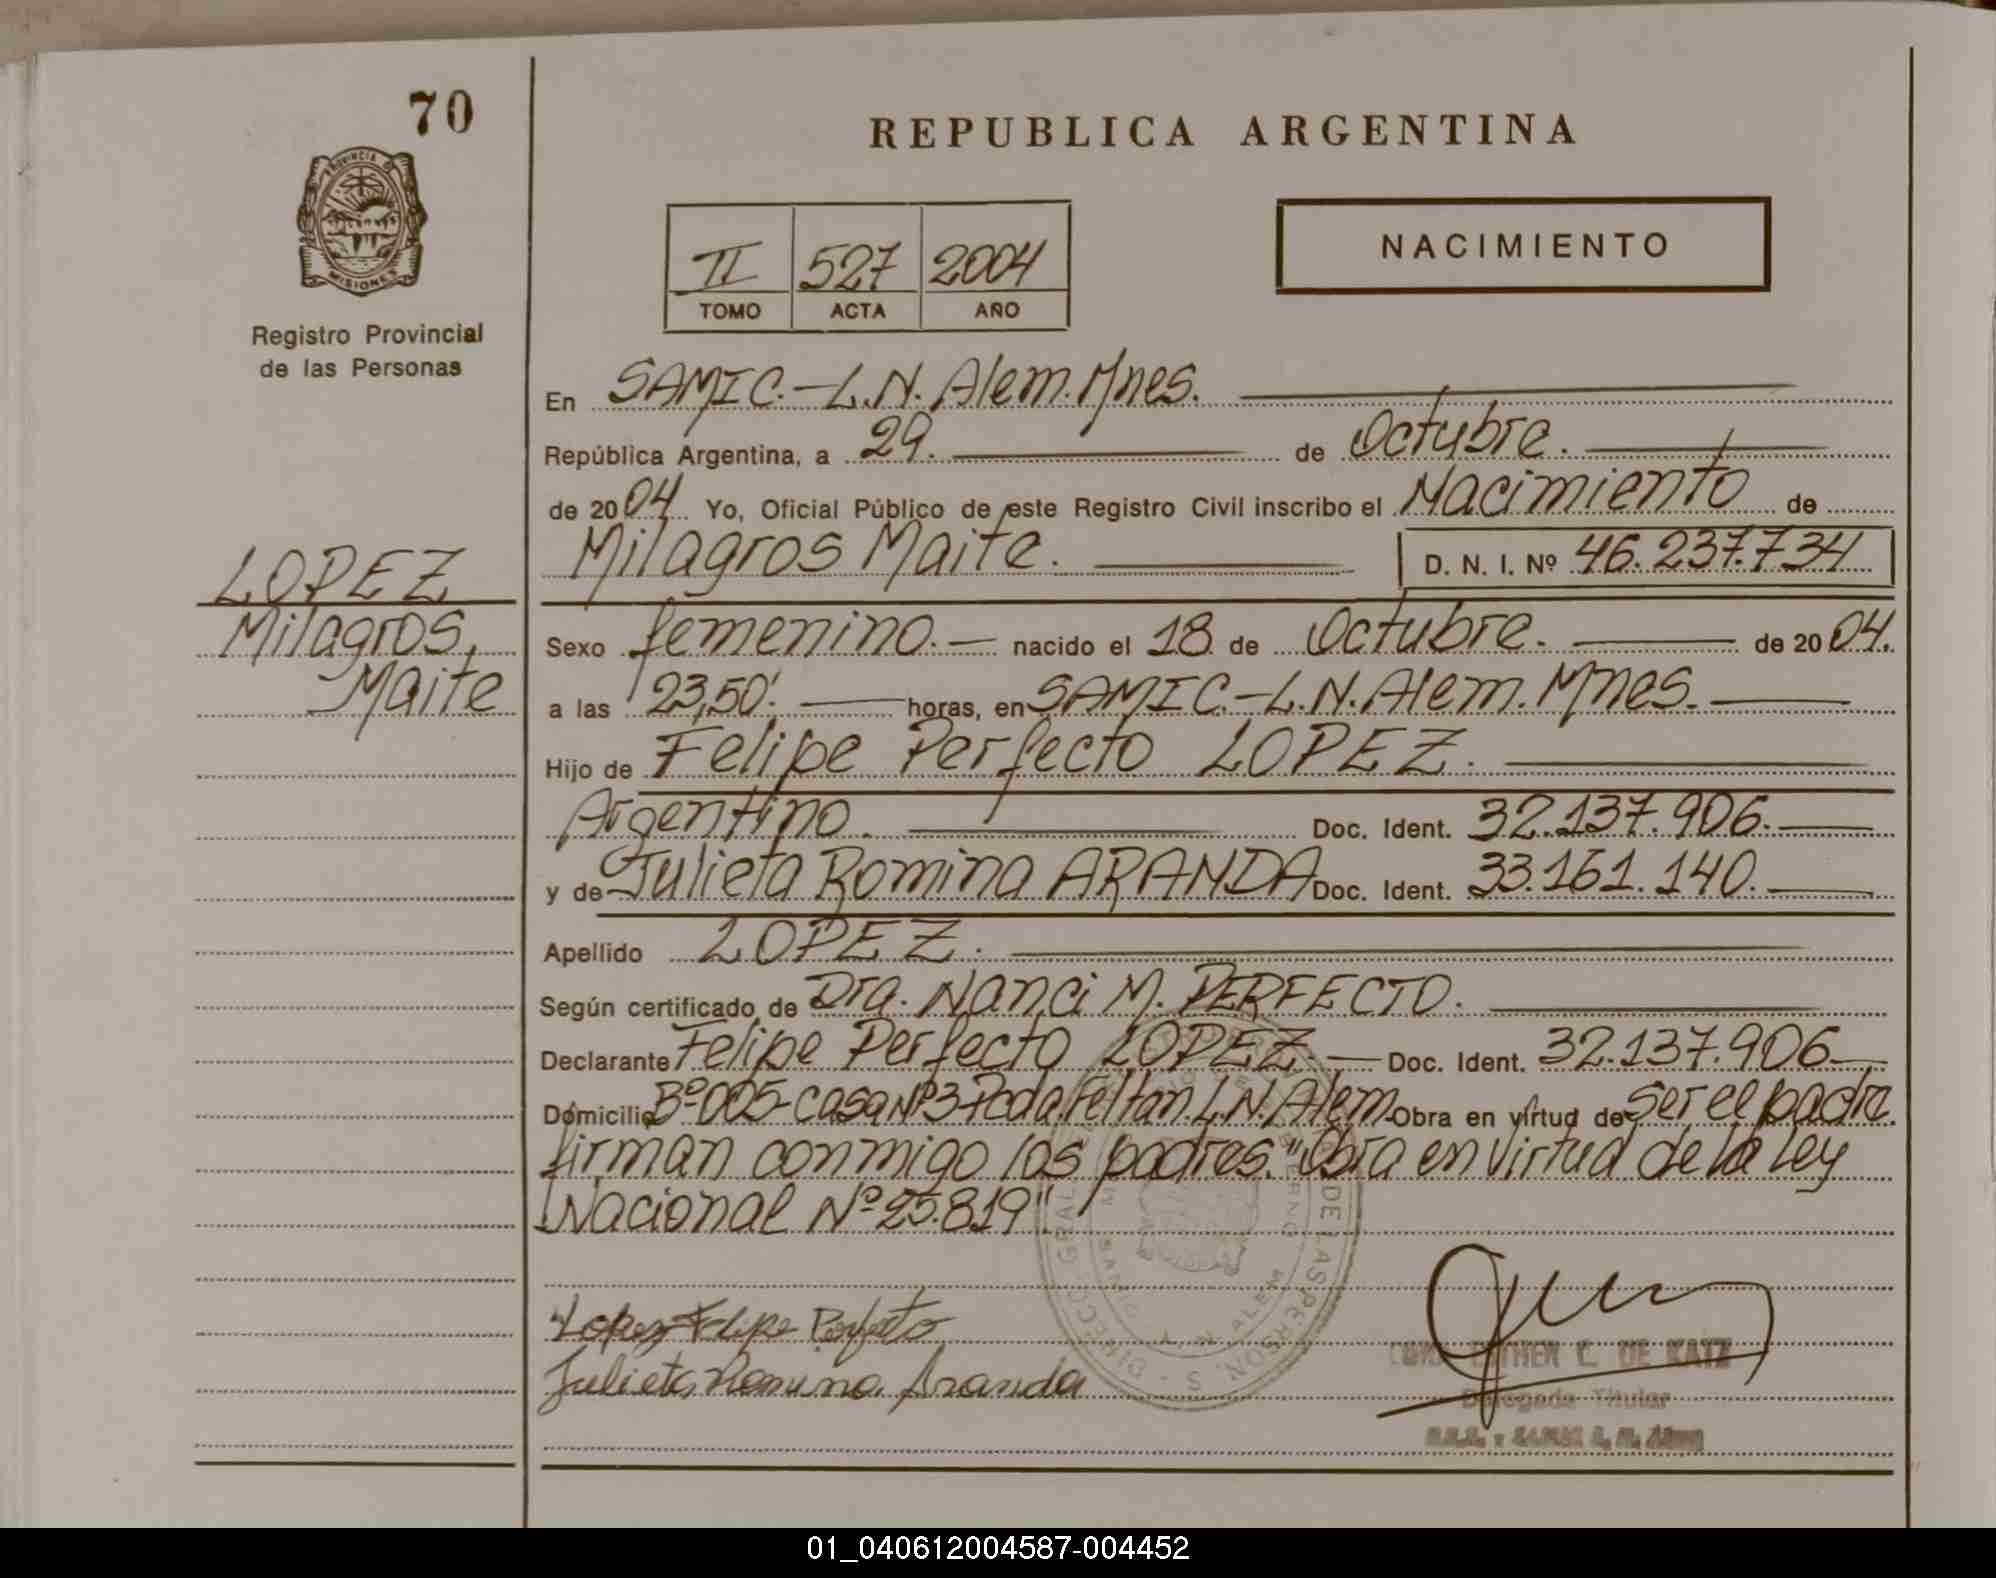 70
REPUBLICA ARGENTINA
PROVINCIA DE
MISIONES
Registro Provincial
de las Personas
II 527 2004
TOMO ACTA AÑO
NACIMIENTO
En SAMIC.-L.N. Alem. Mnes.
República Argentina, a 29. de Octubre.
de 2004 Yo, Oficial Público de este Registro Civil inscribo el Nacimiento de
Milagros Maite. D. N. I. Nº 46.237.734
LOPEZ
Milagros
Maite
Sexo femenino.- nacido el 18 de Octubre. de 2004.
a las 23,50'. horas, en SAMIC.-L.N. Alem. Mnes.
Hijo de Felipe Perfecto LOPEZ.
Argentino. Doc. Ident. 32.137.906.
y de Julieta Romina ARANDA Doc. Ident. 33.161.140.
Apellido LOPEZ.
Según certificado de Dra. Nanci M. PERFECTO.
Declarante Felipe Perfecto LOPEZ.- Doc. Ident. 32.137.906
Domicilio Bº-005-Casa Nº3-Pcda. Feltan. L.N. Alem. Obra en virtud de ser el padre.
firman conmigo los padres. "Obra en virtud de la Ley
Nacional Nº 25.819"
Lopez Felipe Perfecto
Julieta Romina Aranda
ESTHER C. DE KATZ
Delegada Titular
DE LAS PERSON S - DIRECC. GRAL
L. N. ALEM
01_040612004587-004452